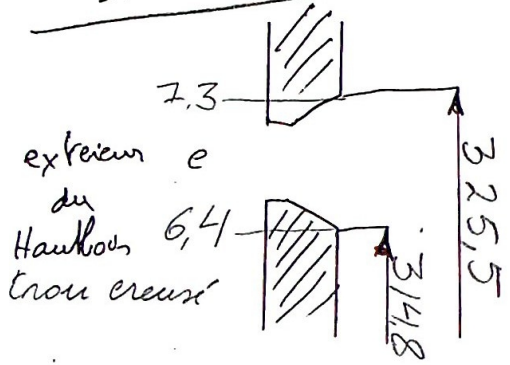 7,3
extreieur e
du
Hautbois 6,4
trou creusé
325,5
314,8